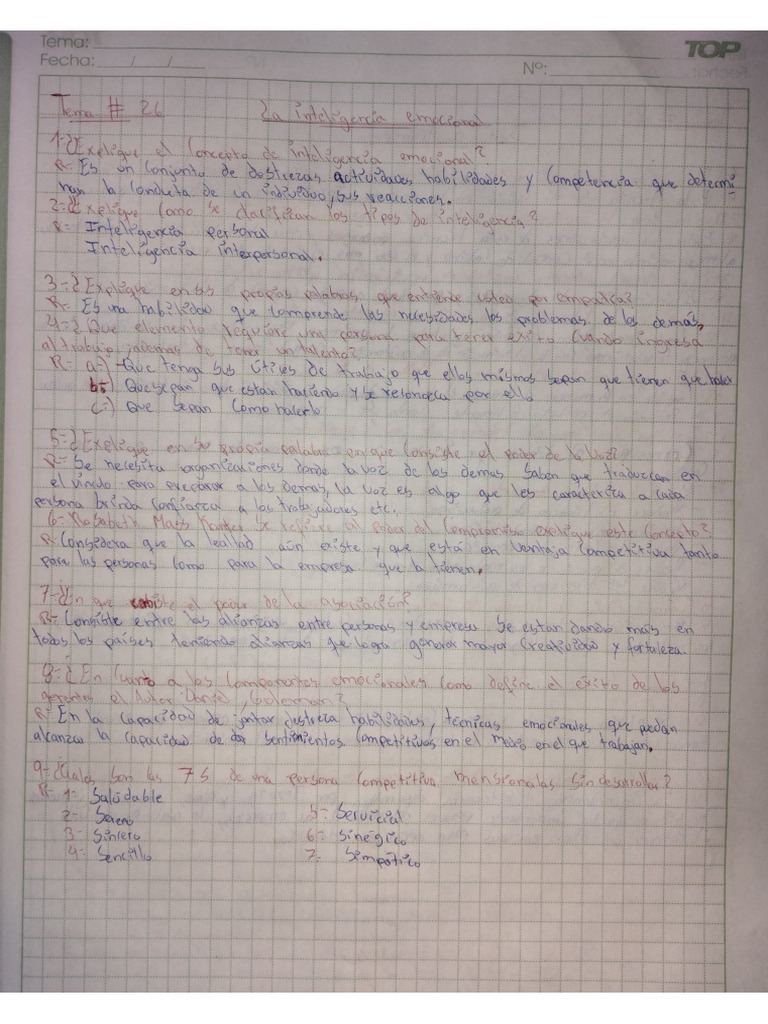 Tema:
TOP
Fecha: / /
Nº:
Tema # 26 La inteligencia emocional
1-¿Explique el Concepto de inteligencia emocional?
R- Es un conjunto de destrezas actividades habilidades y Competencia que determi
nan la conducta de un individuo, sus reacciones.
2-¿Explique como se clasifican los tipos de inteligencia?
R- Inteligencia personal
Inteligencia interpersonal.
3-¿Explique en sus propias palabras que entiende usted por empatía?
R- Es una habilidad que comprende las necesidades los problemas de los demás,
4-¿Que elemento requiere una persona para tener exito Cuando ingresa
al trabajo ademas de tener un talento?
R- a-) -Que tenga sus útiles de trabajo que ellos mismos sepan que tienen que hacer
b-) Que sepan que estan haciendo y se reconozca por ello
c-) Que sepan Como hacerlo
5-¿Explique en su propia palabra en que consiste el poder de la Voz?
R- Se necesita organizaciones donde la voz de los demas Saben que traduzcan en
el para preparar a los demas, la voz es algo que les caracteriza a cada
persona brinda confianza a los trabajadores etc.
6- Mass se refiere al poder del Compromiso explique este concepto?
R- Considera que la lealtad aún existe y que está en ventaja Competitiva tanto
para las personas como para la empresa que la tienen.
7-¿En que el poder de la asociación?
R- Consiste entre las alianzas entre personas y empresas Se estan dando más en
todos los países teniendo alianzas que logra generar mayor Creatividad y fortaleza.
8-¿En Cuanto a los Componentes emocionales como define el éxito de los
gerentes el Autor Goleman?
R- En la capacidad de juntar destreza habilidades, técnicas emocionales que puedan
alcanzar la capacidad de sentimientos Competitivos en el medio en el que trabajan.
9-¿Cuáles son las 7 S de una persona Competitiva mensionalas Sin desarrollar?
R- 1- Saludable
2- Sereno
3- Sincero
4- Sencillo
5- Servicial
6- Sinégico
7- Simpático